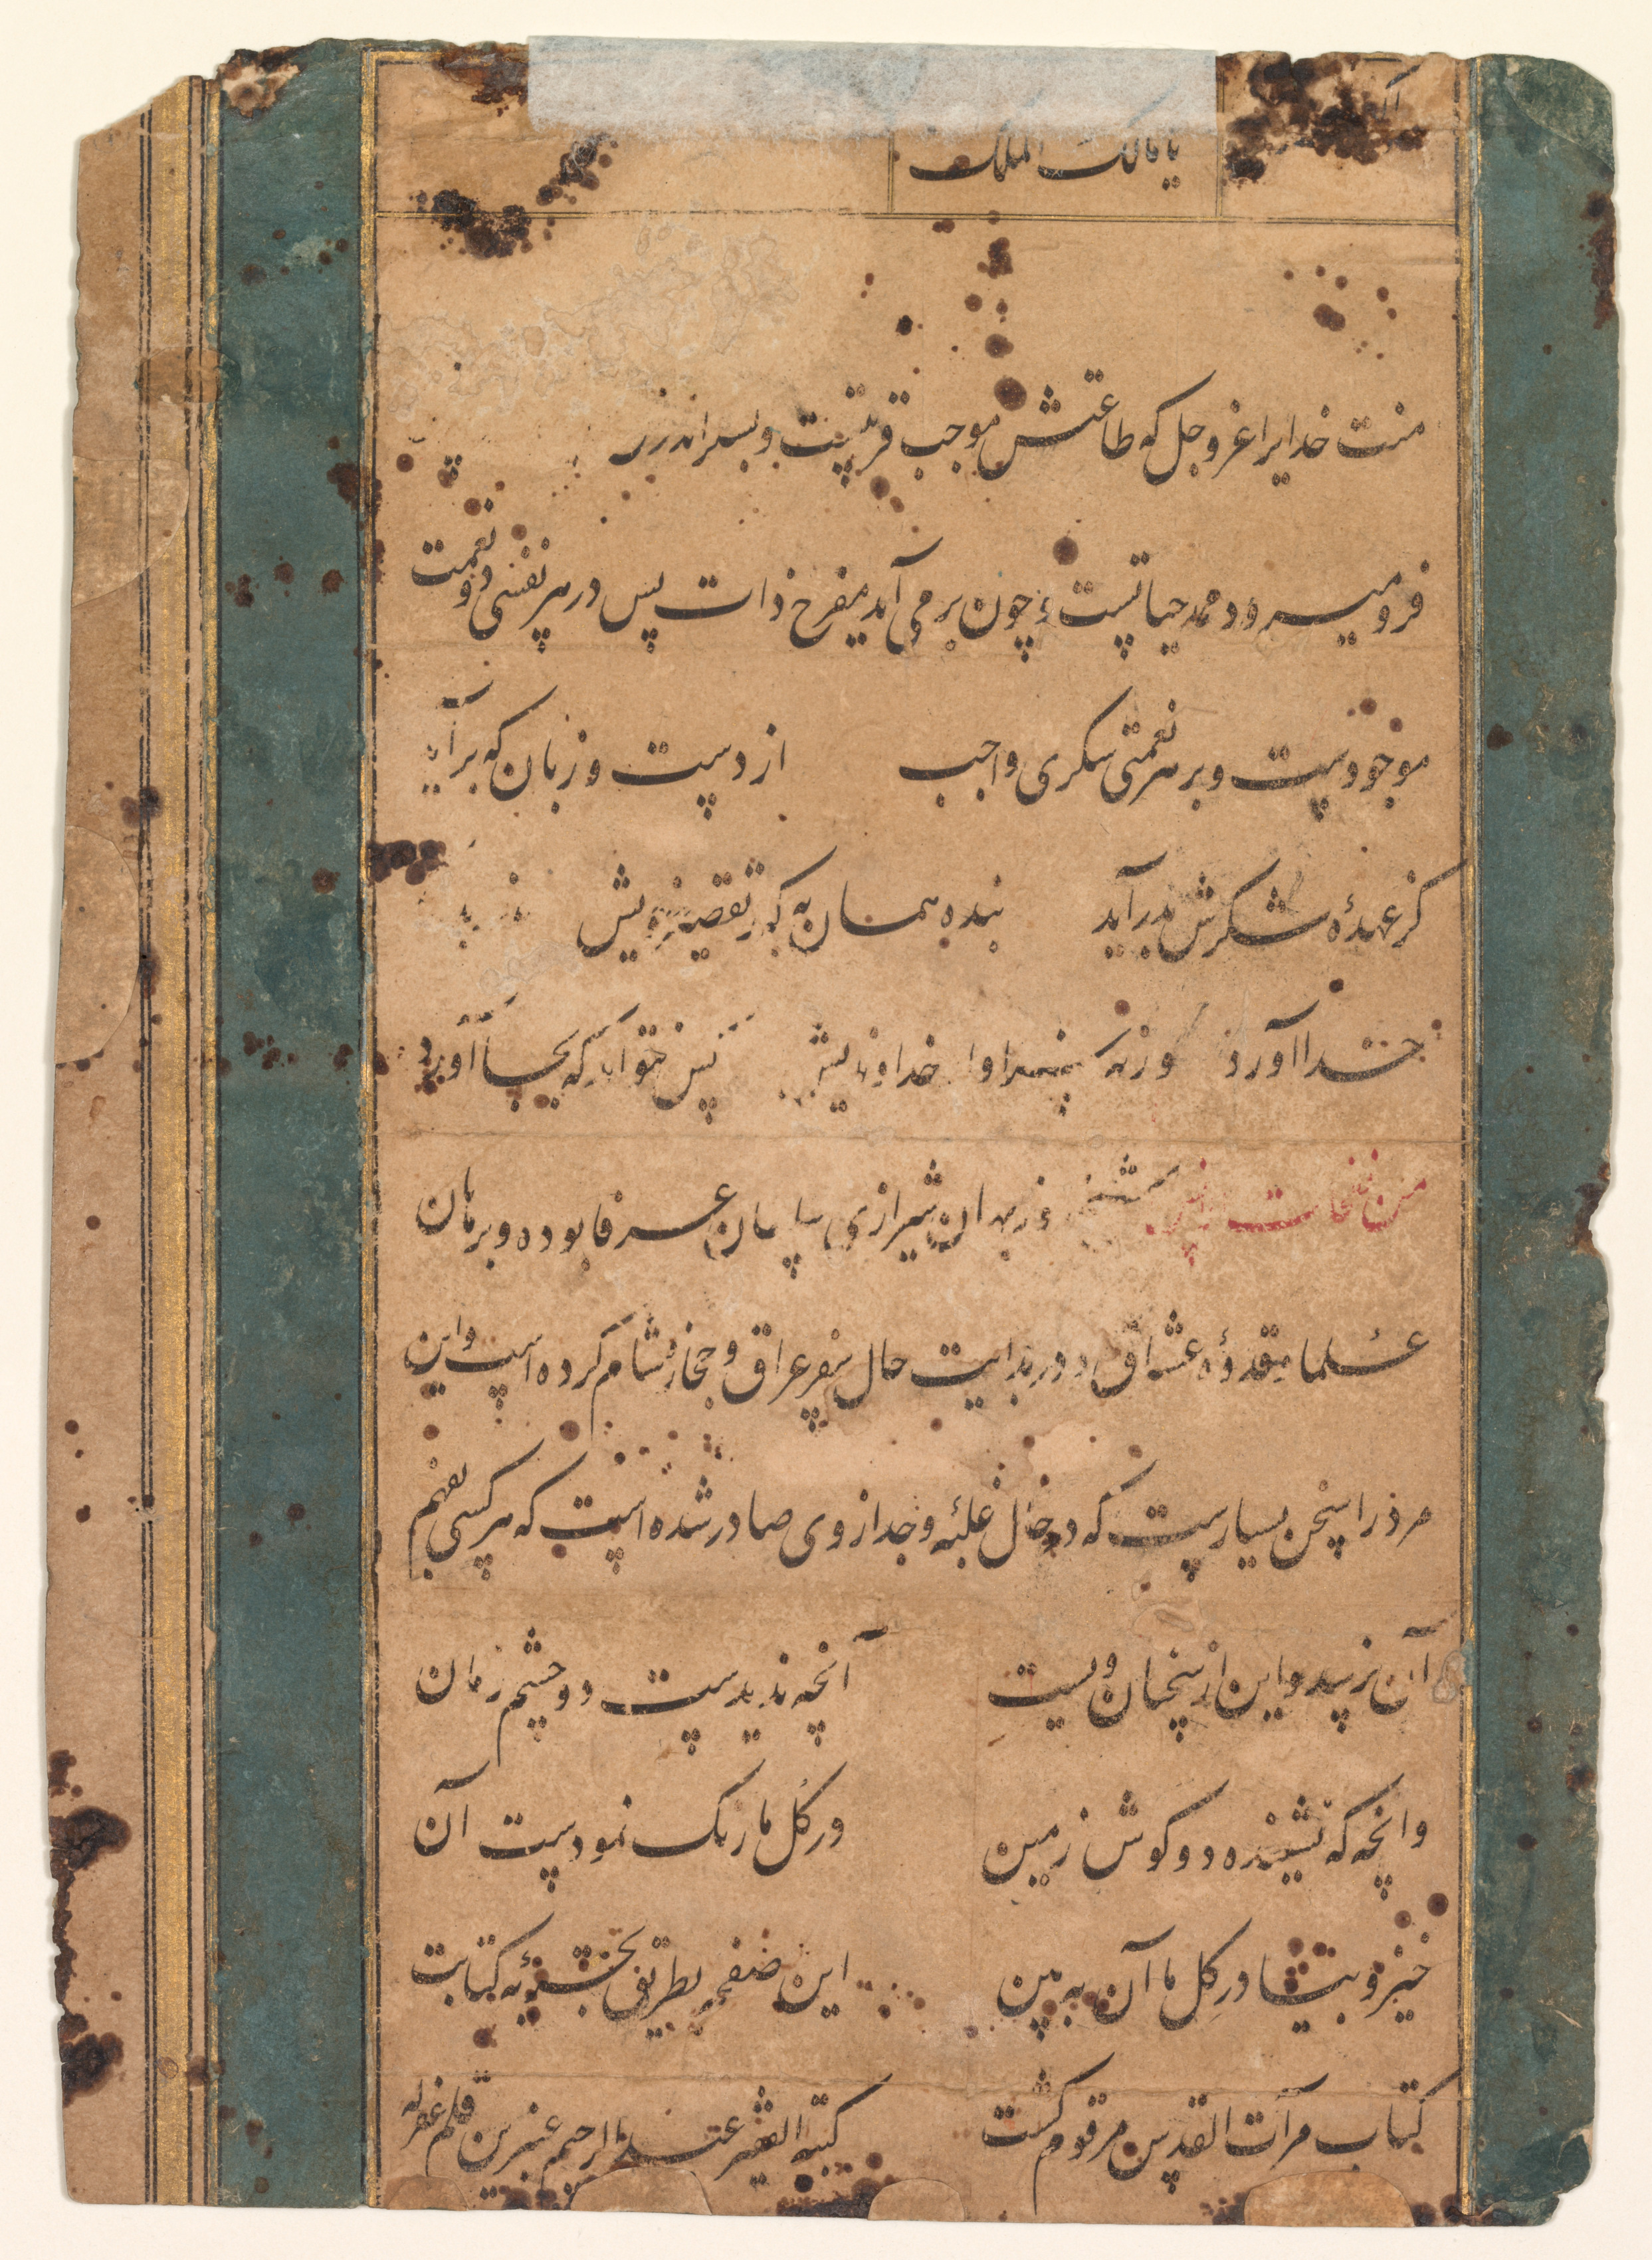 یا مالک الملک
منت خدایرا عز و جل که طاعتش موجب قربتست و بشکر اندرش
فرو میرود ممد حیاتست و چون برمی آید مفرح ذات پس در هر نفسی دو نعمت
موجودست و بر هر نعمتی شکری واجب از دست و زبان که برآید
کز عهدهٔ شکرش بدر آید بنده همان به که ز تقصیر خویش
خدا آورد ورنه سزاوار خداوندیش کس نتواند که بجا آورد
من نفحات شیرازی عرفا بوده و برهان
علما قدوهٔ عشاق در بدایت حال سفر عراق و حجاز و شام کرده است و این
مرد را سخن بسیارست که در حال غلبهٔ وجد از وی صادر شده است که هر کسی بفهم
آن نرسد و این از سخنان ویست آنچه ندیدست دو چشم زمان
وانچه که نشنیده دو گوش زمین در گل ما رنگ نمودست آن
خیز و بیا در گل ما آن ببین این صفحه بطریق کتابت
کتاب مرآت القدس مرقوم گشت کتبه الفقیر عبد الرحیم عنبرین قلم غفر له